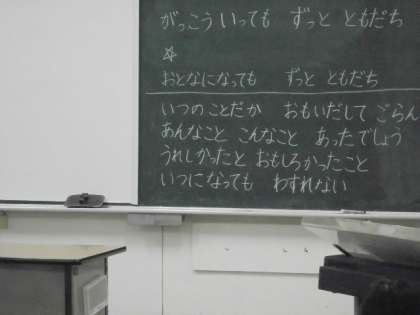 がっこういっても ずっと ともだち
☆
おとなになっても ずっと ともだち
いつのことだか おもいだして ごらん
あんなこと こんなこと あったでしょう
うれしかったと おもしろかったこと
いつになっても わすれない